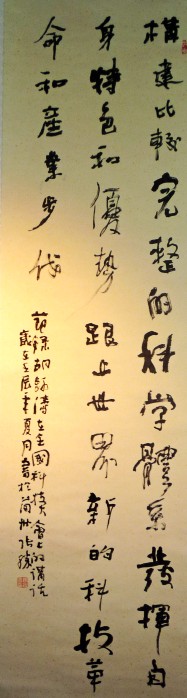 構建比較完整的科學體系發揮自
身特色和優勢跟上世界新的科技革
命和產業步伐
節錄胡錦濤在全國科技大會上的講話
歲在壬辰年夏月書於